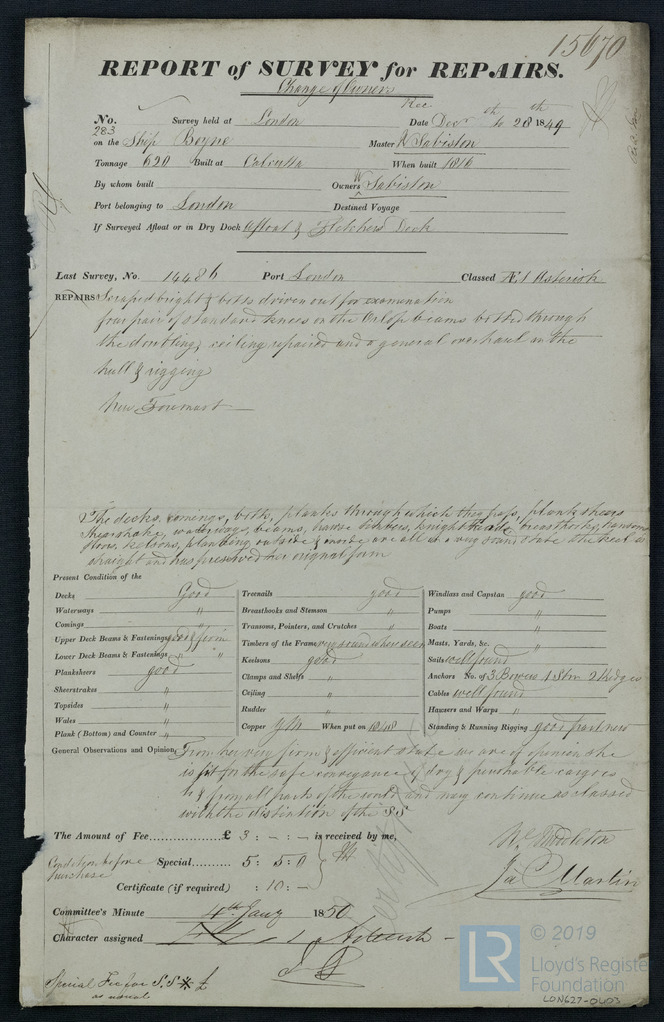 15670
REPORT of SURVEY for REPAIRS.
Change of Owners
Rec.
No. 283 Survey held at London Date Decr 4th to 28th 1849
on the Ship Boyne Master W Sabiston
Tonnage 620 Built at Calcutta When built 1816
By whom built Owners W Sabiston
Port belonging to London Destined Voyage
If Surveyed Afloat or in Dry Dock Afloat & Fletchers Dock
Last Survey, No. 14486 Port London Classed Æ1 Asterisk
REPAIRS Scraped bright & bolts driven out for examination
four pair of standard knees on the Orlop beams bolted through
the doubling, ceiling repaired and a general overhaul in the
hull & rigging
New Foremast
The decks, comings, bolts, planks through which they pass, planksheers
Shearstrakes, waterways, beams, hawse timbers, knightheads, breasthooks, transoms
floors, kelsons, planking outside & inside are all in a very sound state the keel is
straight and has preserved her original form
Present Condition of the
Decks Good
Waterways "
Comings "
Upper Deck Beams & Fastenings good & firm
Lower Deck Beams & Fastenings " "
Planksheers good
Sheerstrakes "
Topsides "
Wales "
Plank (Bottom) and Counter "
Treenails good
Breasthooks and Stemson "
Transoms, Pointers, and Crutches "
Timbers of the Frame very sound where seen
Keelsons good
Clamps and Shelfs "
Ceiling "
Rudder "
Copper Y/M When put on 1848
Windlass and Capstan good
Pumps "
Boats "
Masts, Yards, &c. "
Sails well found
Anchors No. of 3 Bowers 1 Strm 2 Kedges
Cables well found
Hawsers and Warps "
Standing & Running Rigging good part new
General Observations and Opinion, From her very firm & efficient state we are of opinion she
is fit for the safe conveyance of dry & perishable cargoes
to & from all parts of the world and may continue as classed
with the distinction of the SS
The Amount of Fee £ 3 : - : - is received by me,
Condition before purchase Special 5 : 5 : 0
Certificate (if required) : 10 : -
Wm Middleton
Jas Martin
Committee's Minute 4th Jany 1850
Character assigned Æ 1 Asterisk
Special Fee for S.S. £
as usual
© 2019
LR
Lloyd's Register
Foundation
LON627-0603